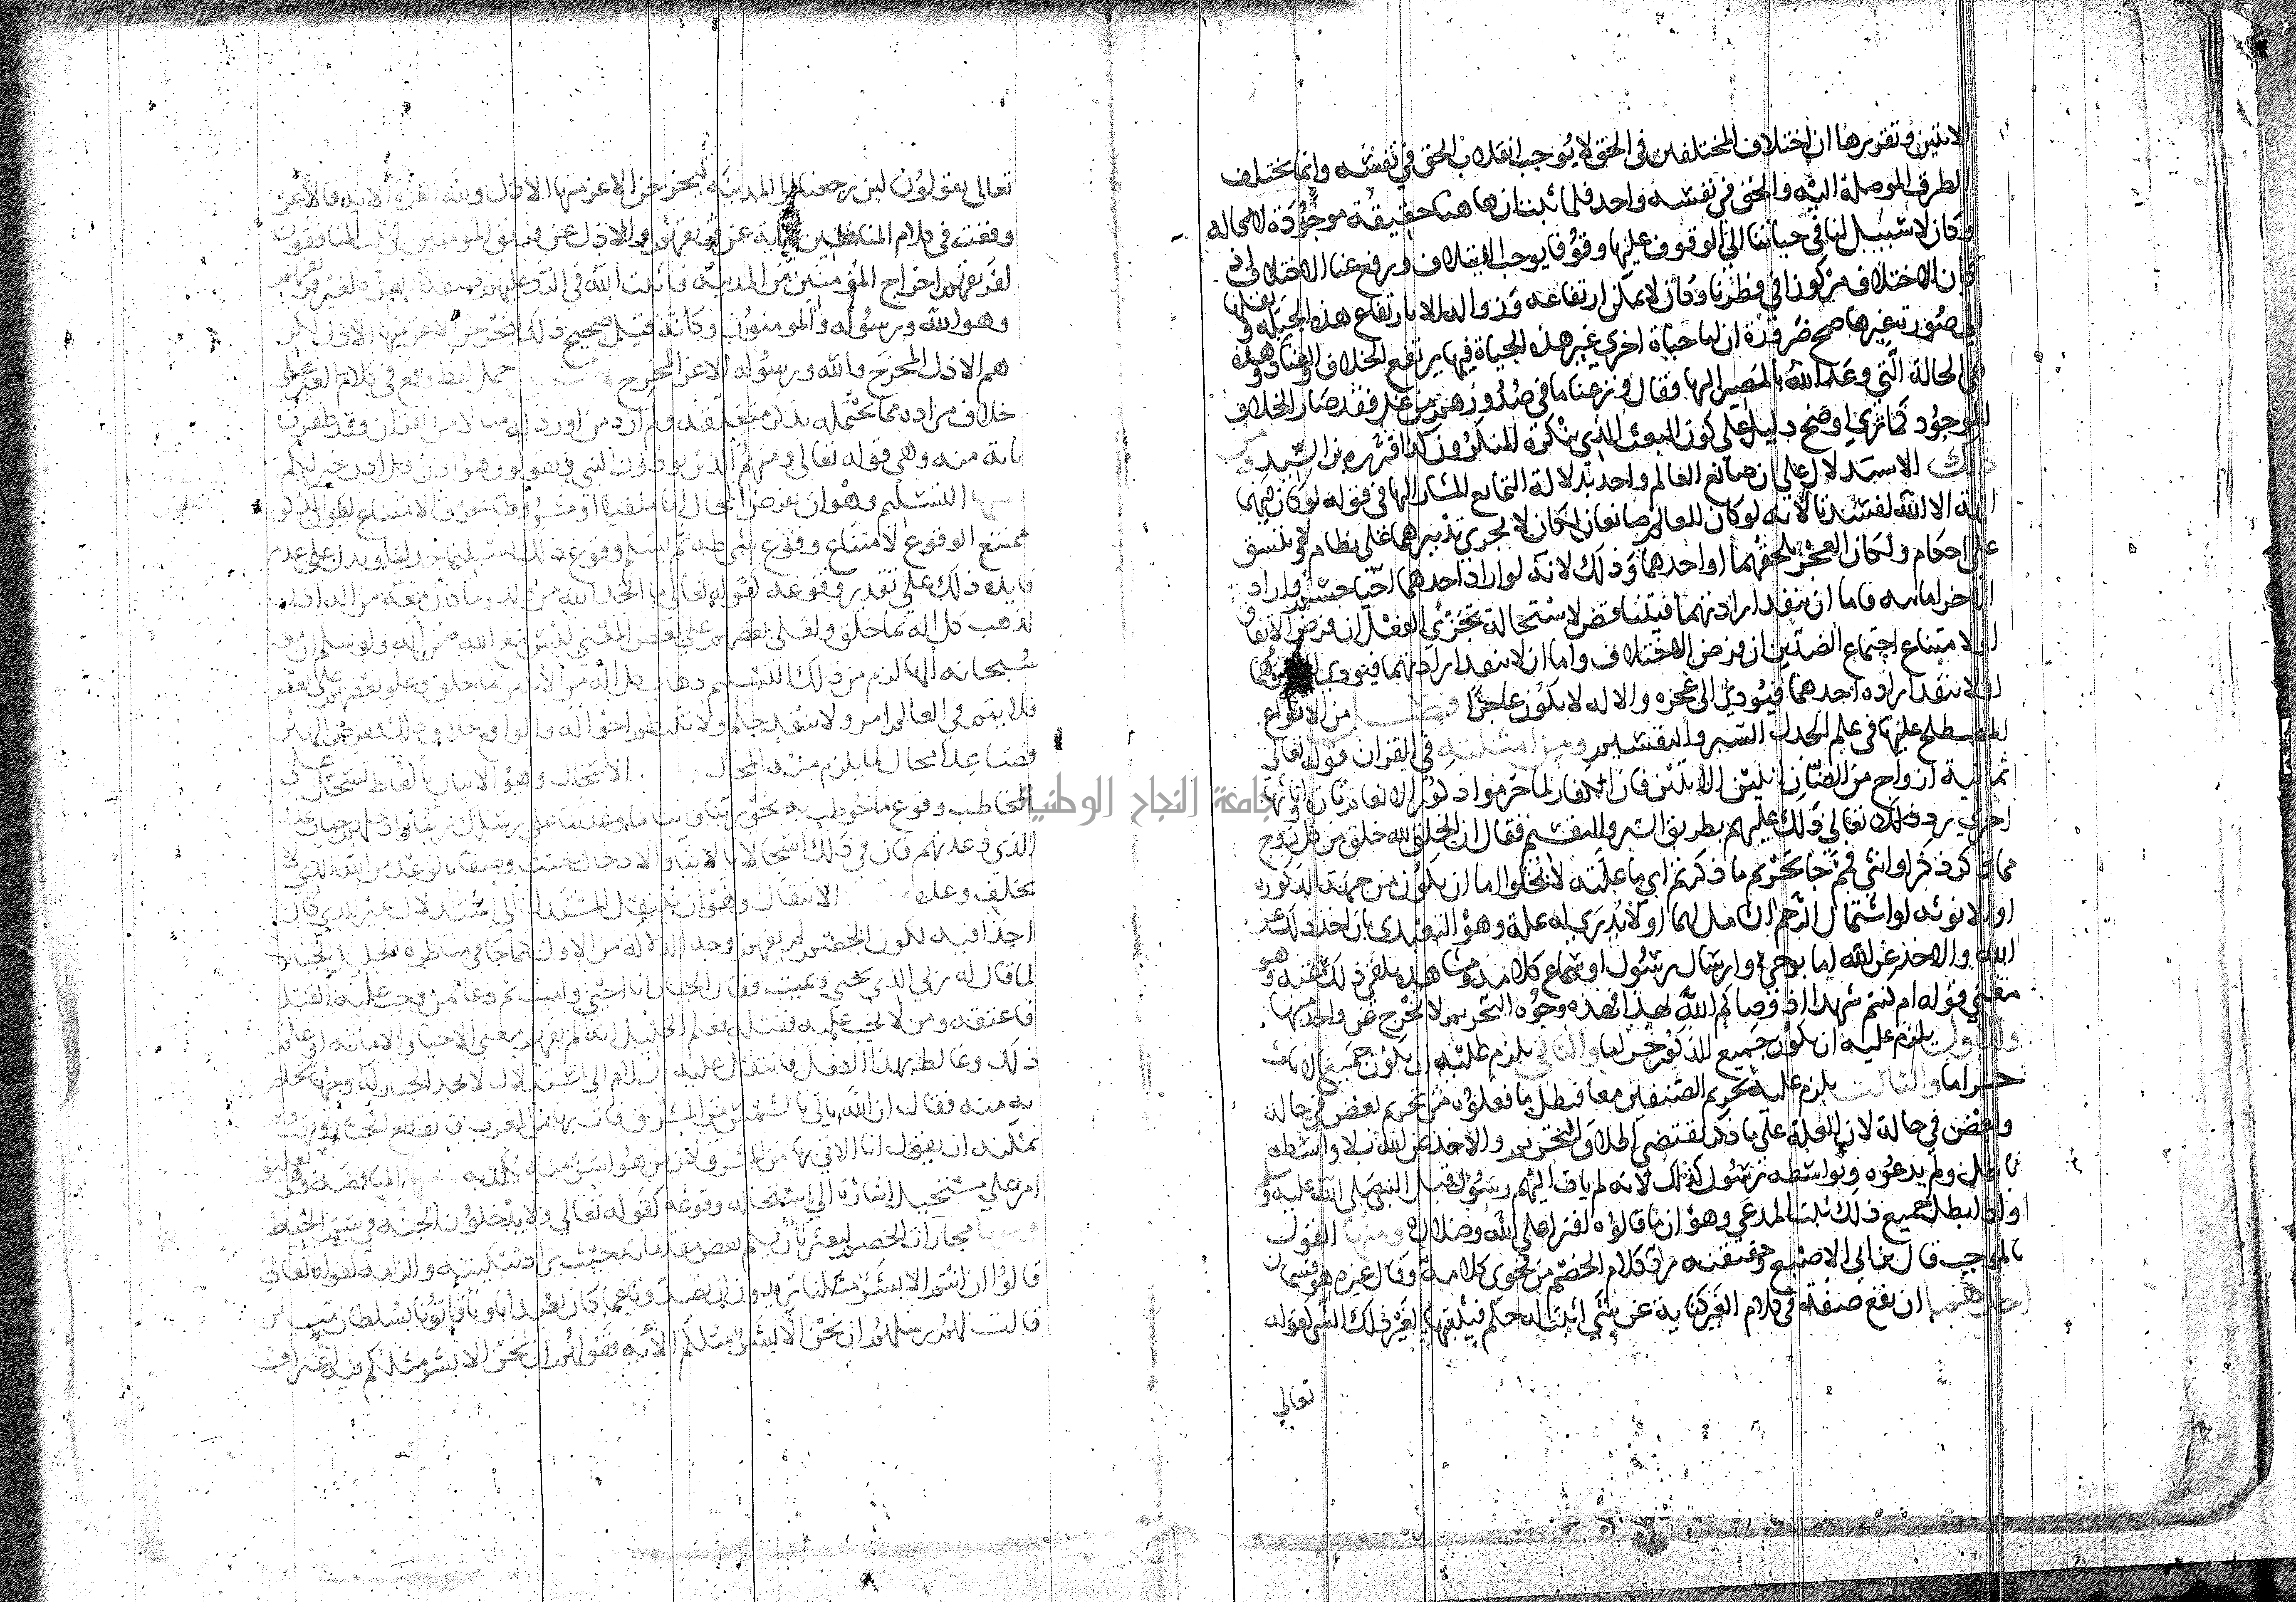 الايتين وتقريرها ان اختلاف المختلفين في الحق لا يوجب انقلاب الحق في نفسه وانما يختلف
الطرق الموصلة اليه والحق في نفسه واحد فلما ثبت ان ها هنا حقيقة موجودة لا محاله
وكان لا سبيل لنا في حياتنا الى الوقوف عليها وقوفا يوجب الايتلاف ويرفع عنا الاختلاف اذ
كان الاختلاف مركوزا في فطرنا وكان لا يمكن ارتفاعه وزواله الا بارتفاع هذه الجبله ونقلها
الى صورة غيرها صح ضرورة ان لنا حياة اخرى غير هذه الحياة فيها يرتفع الخلاف والعناد وهذه
هي الحالة التي وعد الله بالمصير اليها فقال ونزعنا ما في صدورهم من غل فقد صار الخلاف
الموجود كما ترى اوضح دليل على كون البعث الذي ينكره المنكرون كذا قرره ابن السيد ومن
ذلك الاستدلال على ان صانع العالم واحد بدلالة التمانع المشار اليها في قوله لو كان فيهما
الهة الا الله لفسدتا لانه لو كان للعالم صانعان لكان لا يجري تدبيرهما على نظام ولا يتسق
على احكام ولكان العجز يلحقهما او احدهما وذلك لانه لو اراد احدهما احيا جسم واراد
الاخر اماتته فاما ان ينفد ارادتهما فيتناقض لاستحالة تجزي الفعل ان فرض الاتفاق
او لامتناع اجتماع الضدين ان فرض الاختلاف واما ان لا ينفد ارادتهما فيودي الى عجزهما
او لا ينفد اراده احدهما فيودي الى عجزه والاله لا يكون عاجزا فصل من الانواع
المصطلح عليها في علم الجدل السبر والتقسيم ومن امثلته في القران قوله تعالى
ثمانية ازواج من الضان اثنين الايتين فان الكفار لما حرموا ذكور الانعام تارة واناثها
اخرى رد ذلك تعالى ذلك عليهم بطريق السبر والتقسيم فقال ان الخلق لله خلق من كل زوج
مما ذكر ذكرا وانثى فمم جا تحريم ما ذكرتم اي ما علته لا يخلوا اما ان يكون من جهة الذكورة
او الانوثه او اشتمال الرحم الشامل لهما او لا يدري له علة وهو التعبدي بان اخذ ذلك عن
الله والاخذ عن الله اما بوحي وارسال رسول او سماع كلامه ومشاهدة تلقي ذلك عنه وهو
معنى قوله ام كنتم شهدا اذ وصاكم الله بهذا فهذه وجوه التحريم لا تخرج عن واحد منها
والاول يلزم عليه ان يكون جميع الذكور حراما والثاني يلزم عليه ان يكون جميع الاناث
حراما والثالث يلزم عليه تحريم الصنفين معا فبطل ما فعلوه من تحريم بعض في حالة
وبعض في حالة لان العلة على ما ذكر تقتضي اطلاق التحريم والاخذ عن الله بلا واسطه
باطل ولم يدعوه وبواسطه رسول كذلك لانه لم يات اليهم رسول قبل النبي صلى الله عليه وسلم
واذا بطل جميع ذلك ثبت المدعي وهو ان ما قالوه افترا على الله وضلال ومنها القول
بالموجب قال ابن ابي الاصبع وحقيقته رد كلام الخصم من فحوى كلامه وقال غيره هو قسمان
احدهما ان تقع صفة في كلام الغير كناية عن شي اثبت له حكم فيثبتها لغير ذلك الشي كقوله
تعالى
تعالى يقولون لين رجعنا الى المدينة ليخرجن الاعز منها الاذل ولله العزة الايه فالاعز
وقعت في كلام المنافقين كناية عن فريقهم والاذل عن فريق المومنين واثبت المنافقون
لفريقهم اخراج المومنين من المدينه فاثبت الله في الرد عليهم صفة العزه لغير فريقهم
وهو الله ورسوله والمومنون وكانه قيل صحيح ذلك ليخرجن الاعز منها الاذل لكن
هم الاذل المخرج والله ورسوله الاعز المخرج حمل لفظ وقع في كلام الغير على
خلاف مراده مما يحتمله بذكر متعلقه ولم ار من اورد له مثالا من القران وقد ظفرت
باية منه وهي قوله تعالى ومنهم الذين يوذون النبي ويقولون هو اذن قل اذن خير لكم
ومنها التسليم وهو ان يفرض المحال اما منفيا او مشروطا بحرف الامتناع ليكون المذكور
ممتنع الوقوع لامتناع وقوع شرطه ثم يسلم وقوع ذلك تسليما جدليا ويدل على عدم
فايدة ذلك على تقدير وقوعه كقوله تعالى ما اتخذ الله من ولد وما كان معه من اله اذا
لذهب كل اله بما خلق ولعلى بعضهم على بعض المعنى ليس مع الله من اله ولو سلم ان معه
سبحانه الها لزم من ذلك التسليم ذهاب كل اله من الاثنين بما خلق وعلو بعضهم على بعض
فلا يتم في العالم امر ولا ينفد حكم ولا تنتظم احواله والواقع خلاف ذلك ففرض الهين
فصاعدا محال لما يلزم منه المحال الاسجال وهو الاتيان بالفاظ تسجل على
المخاطب وقوع ما خوطب به نحو ربنا واتنا ما وعدتنا على رسلك ربنا وادخلهم جنات عدن
الذي وعدتهم فان في ذلك اسجالا بالايتا والادخال حيث وصفا بالوعد من الله الذي لا
يخلف وعده الانتقال وهو ان ينتقل المستدل الى استدلال غير الذي كان
اخذا فيه لكون الخصم لم يفهم وجه الدلالة من الاول كما جا في مناظرة الخليل الجبار
لما قال له ربي الذي يحيي ويميت فقال الجبار انا احيي واميت ثم دعا من وجب عليه القتل
فاعتقه ومن لا يجب عليه فقتله فعلم الخليل انه لم يفهم معنى الاحيا والاماتة او علم
ذلك وغالط بهذا الفعل فانتقل عليه السلام الى استدلال لا يجد الجبار له وجها يتخلص
به منه فقال ان الله ياتي بالشمس من المشرق فات بها من المغرب فانقطع الجبار وبهت
يمكنه ان يقول انا الاتي بها من المشرق لان من هو اسن منه يكذبه المناقضة وهي تعليق
امر على مستحيل اشارة الى استحالة وقوعه كقوله تعالى ولا يدخلون الجنه في سم الخياط
ومنها مجاراة الخصم ليعثر بان يسلم بعض مقدماته حيث يراد تبكيته والزامه كقوله تعالى
قالوا ان انتم الا بشر مثلنا تريدون ان تصدونا عما كان يعبد اباونا فاتونا بسلطان مبين
قالت لهم رسلهم ان نحن الا بشر مثلكم الايه فقولهم ان نحن الا بشر مثلكم فيه اعتراف
جامعة النجاح الوطنية